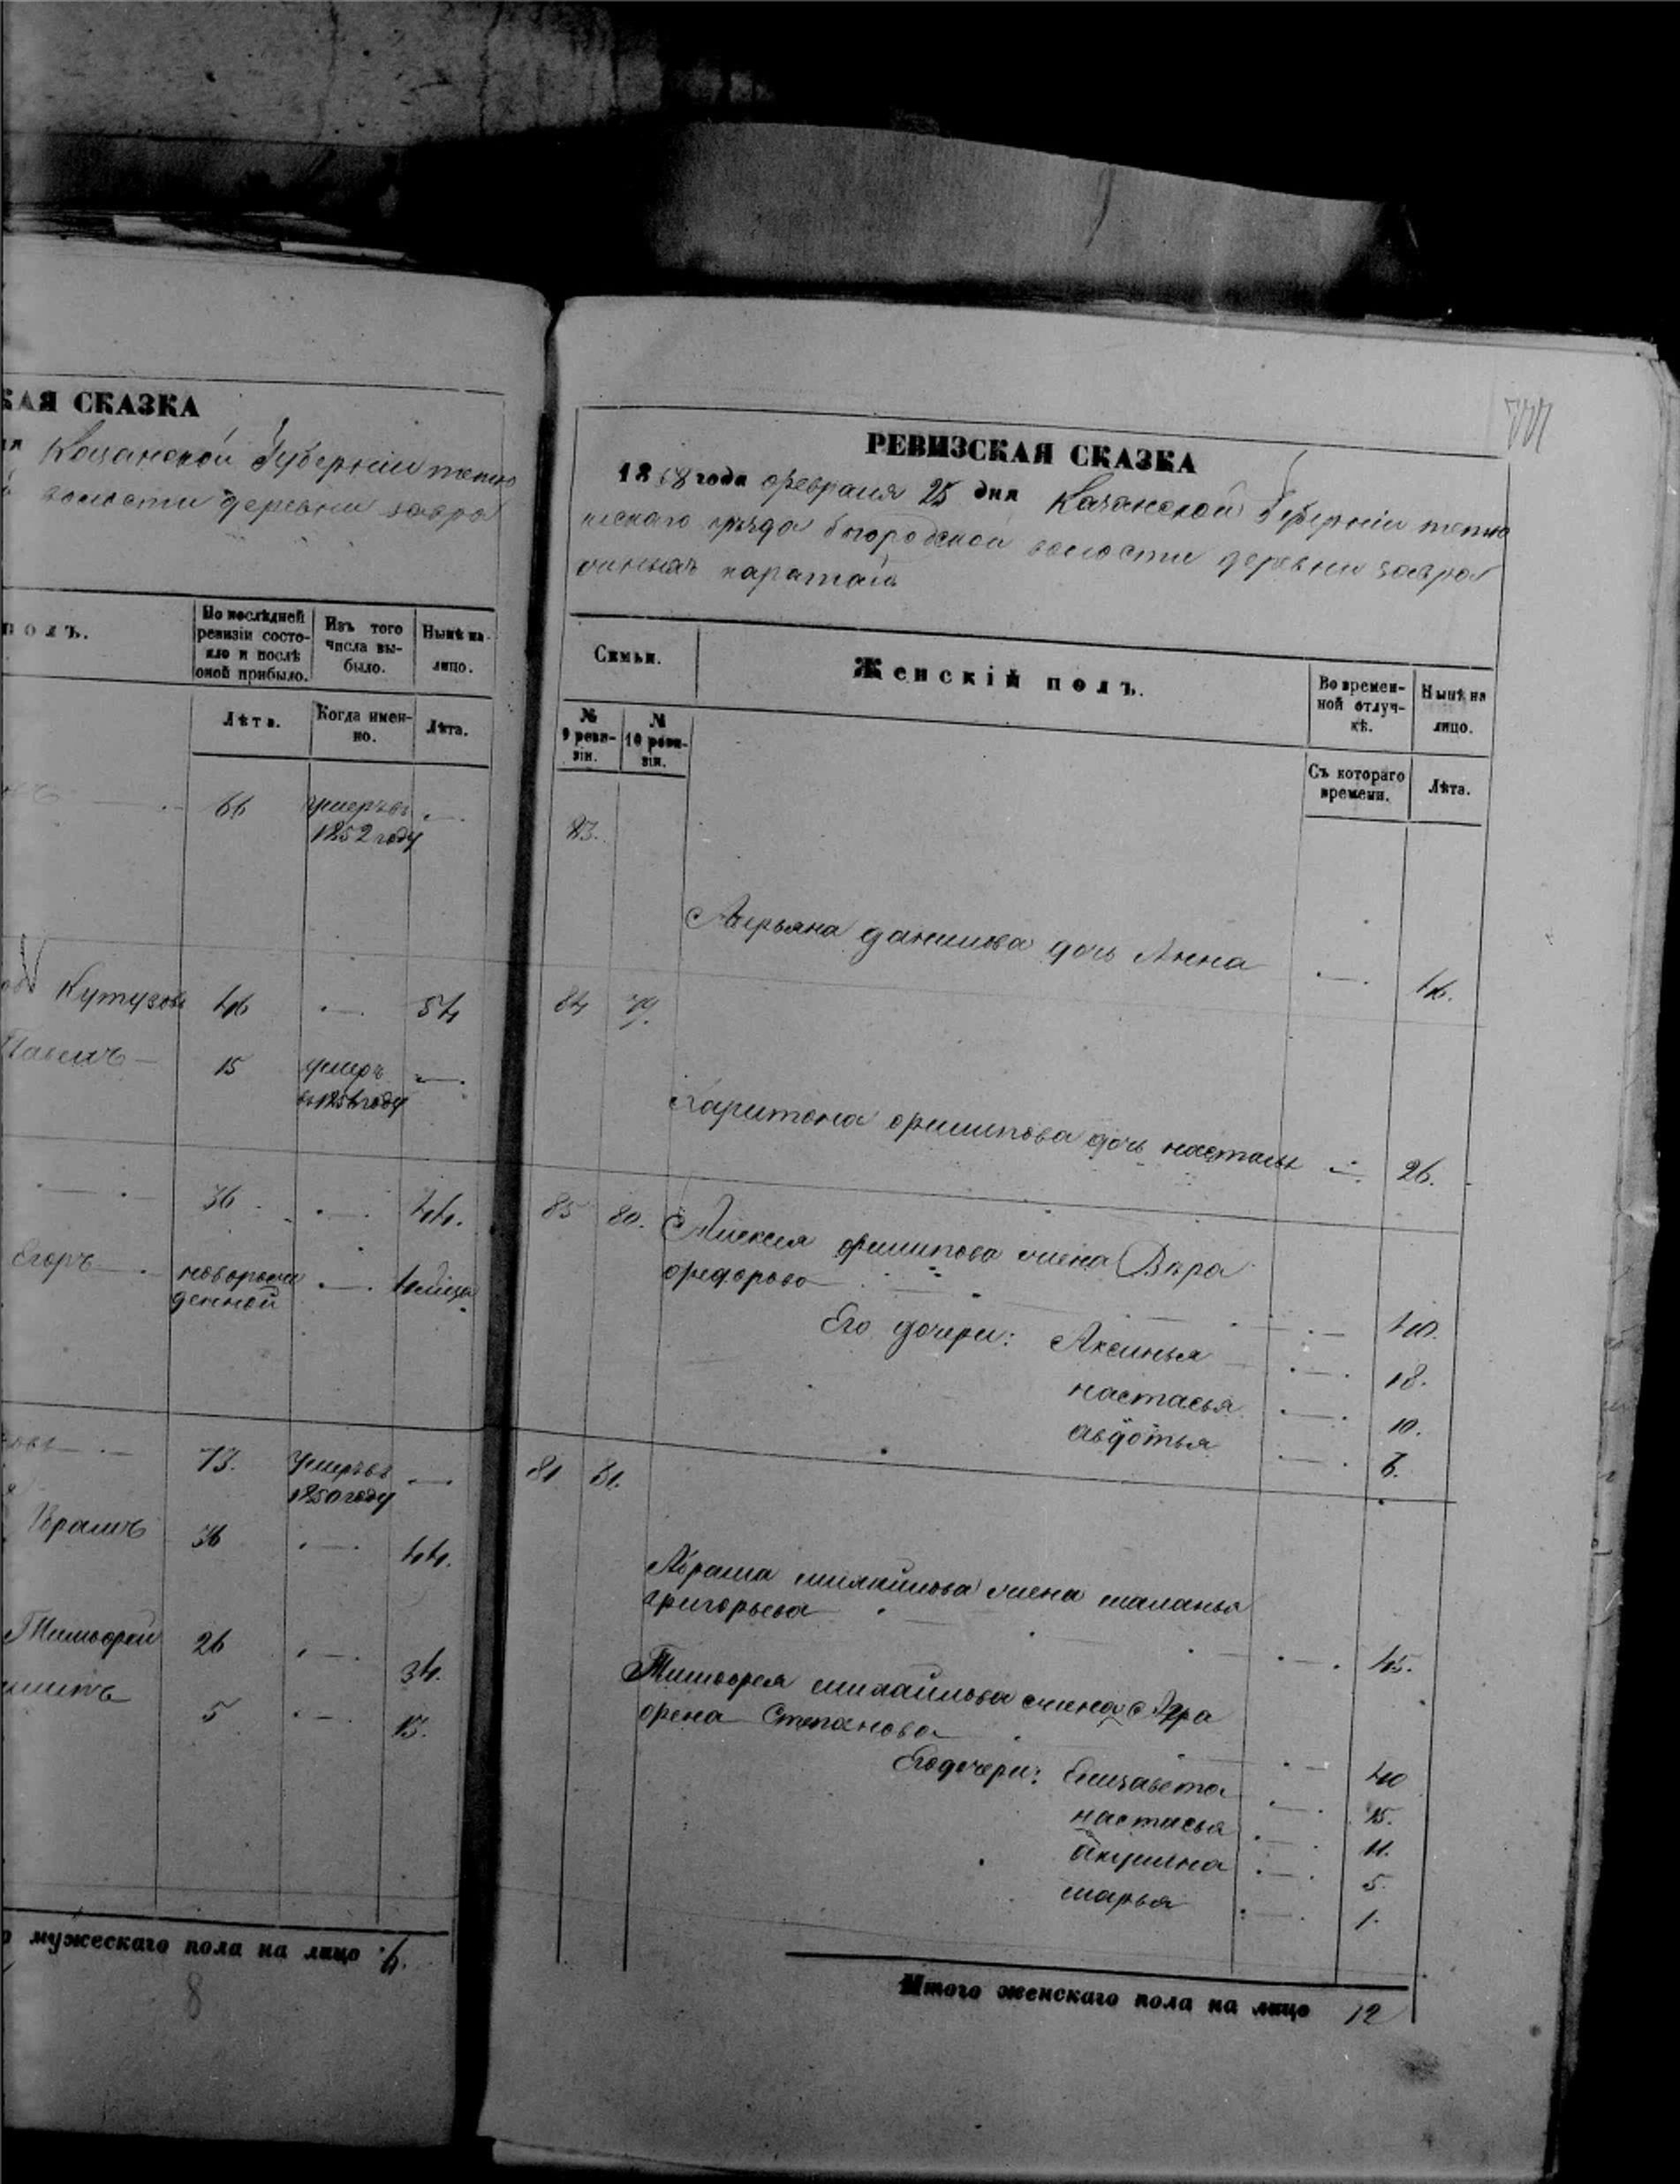 КАЯ СКАЗКА
Казанской Губернiи тетю
волости деревни завра
полъ.
По послѣдней ревизіи состо-
яло и послѣ
оной прибыло.
Изъ того
числа вы-
было.
Нынѣ на
лицо.
Лѣта.
Когда имен-
но.
Лѣта.
66 умеръ въ
1852 году
Кутузовъ 46 54
Павелъ 15 умеръ
въ 1856 году
36 44.
Егоръ новорож
денной
73. Умеръ въ
1850 году
Абрамъ 36 44.
Тимофей 26 34.
5 13.
мужескаго пола на лицо
8
РЕВИЗСКАЯ СКАЗКА
1858 года февраля 25 дня Казанской Губерніи тетю
шскаго уѣзда богородской волости деревни завра
жныхъ каратай
Семьи.
Женскій полъ.
Во времен-
ной отлуч-
кѣ.
Нынѣ на
лицо.
№
9 реви-
зіи.
№
10 реви-
зіи.
Съ котораго
времени.
Лѣта.
83.
Аверьяна данилова дочь Анна 46.
84 79.
Харитона филипова дочь настасья 26.
85 80. Алексея филипова жена Вѣра
федорова 40.
Его дочери: Аксинья 18.
настасья 10.
авдотья 6.
81 81.
Абрама михайлова жена маланья
григорьева 45.
Тимофея михайлова жена Агра
фена Степанова 40
Его дочери: Елизавета 15.
настасья 11.
акулина 5.
марья 1.
Итого женскаго пола на лицо 12